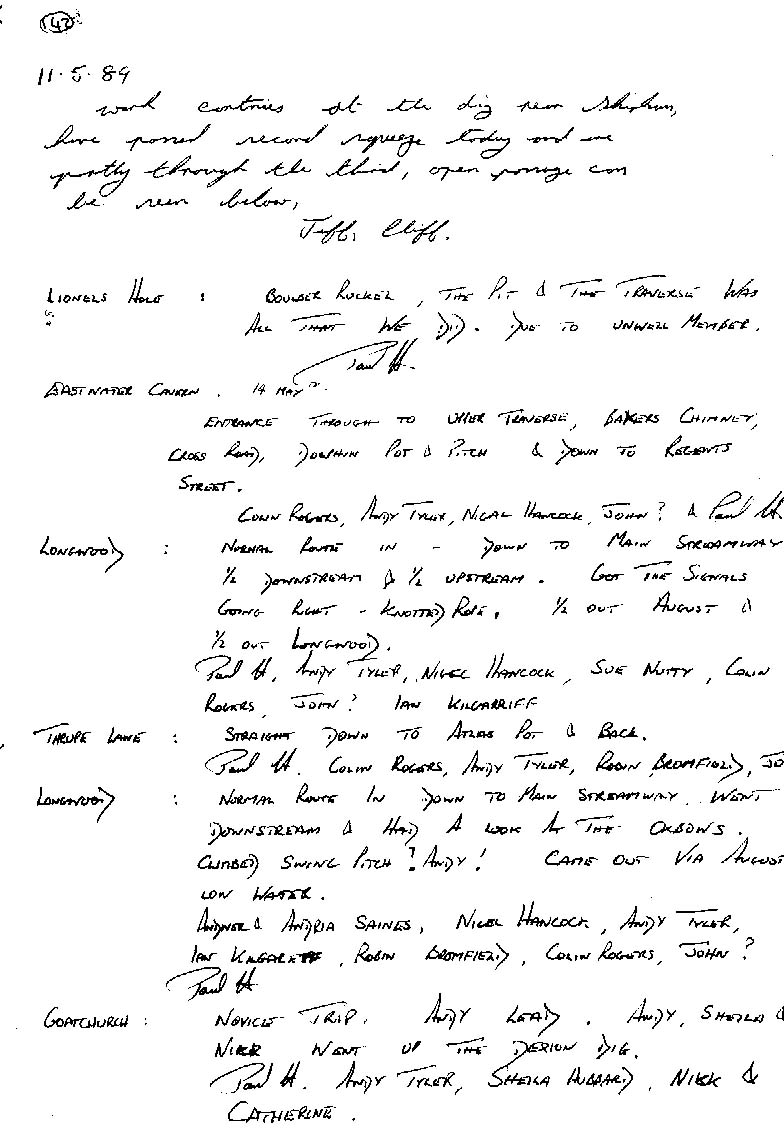 142
11.5.89
work contines at the dig near Shipham,
have passed second squeeze today and are
partly through the third, open passage can
be seen below,
Jeff. Cliff.
LIONELS HOLE : BOULDER RUCKEL, THE PIT & THE TRAVERSE WAS
ALL THAT WE DID. DUE TO UNWELL MEMBER.
Paul H.
EASTWATER CAVERN. 14 MAY
ENTRANCE THROUGH TO UPPER TRAVERSE, BAKERS CHIMNEY,
CROSS ROAD, DOLPHIN POT & PITCH & DOWN TO REGENTS
STREET.
COLIN ROGERS, ANDY TYLER, NIGAL HANCOCK, JOHN? & Paul H.
LONGWOOD : NORMAL ROUTE IN - DOWN TO MAIN STREAMWAY
1/2 DOWNSTREAM & 1/2 UPSTREAM. GOT THE SIGNALS
GOING RIGHT - KNOTTED ROPE. 1/2 OUT AUGUST &
1/2 OUT LONGWOOD.
Paul H, ANDY TYLER, NIGEL HANCOCK, SUE NUTTY, COLIN
ROGERS, JOHN? IAN KILGARRIFF
THRUPE LANE : STRAIGHT DOWN TO ATLAS POT & BACK.
Paul H. COLIN ROGERS, ANDY TYLER, ROBIN BROMFIELD, JO
LONGWOOD : NORMAL ROUTE IN DOWN TO MAIN STREAMWAY. WENT
DOWNSTREAM & HAD A LOOK AT THE OXBOWS.
CLIMBED SWING PITCH? ANDY! CAME OUT VIA AUGUST
LOW WATER.
& ANDRIA SAINES, NIGEL HANCOCK, ANDY TYLER,
IAN KILGARIFF, ROBIN BROMFIELD, COLIN ROGERS, JOHN?
Paul H
GOATCHURCH : NOVICE TRIP. ANDY LEAD. ANDY, SHEILA &
NIKK WENT UP THE DERION DIG.
Paul H. ANDY TYLER, SHEILA HUBBARD, NIKK &
CATHERINE.